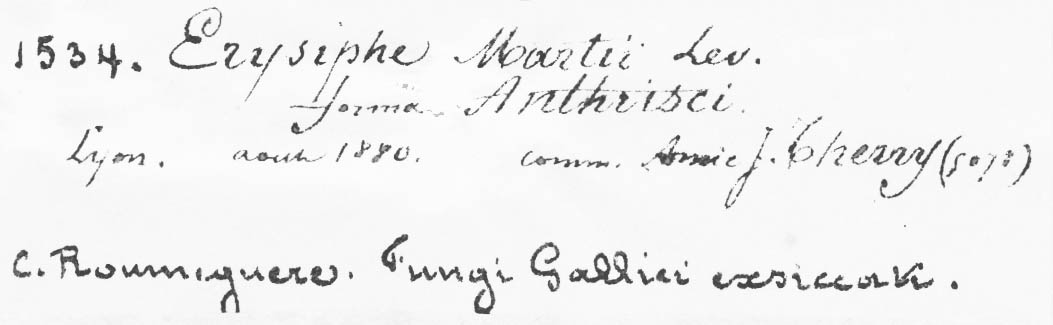 1534. Erysiphe Martii Lev.
forma Anthrisci.
Lyon. aout 1880. comm. Amic J. Therry (5078)
C. Roumeguere. Fungi Gallici exsiccati.